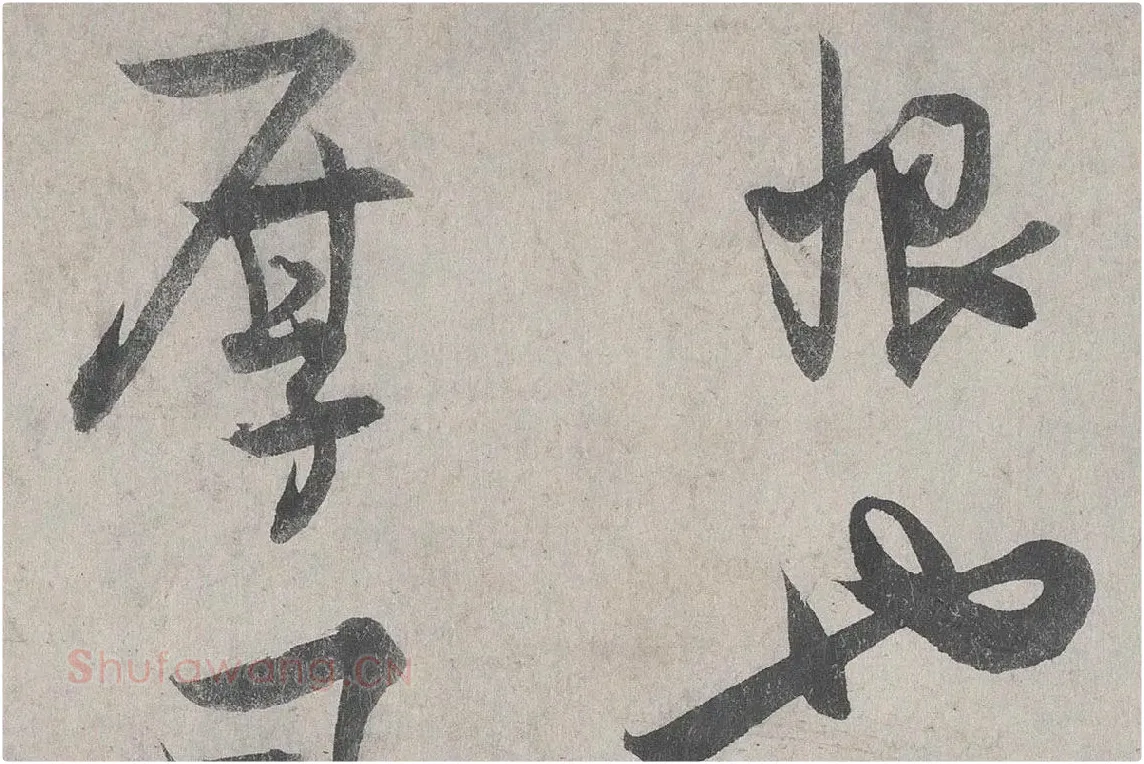 恨也
厚
Shufawang.CN